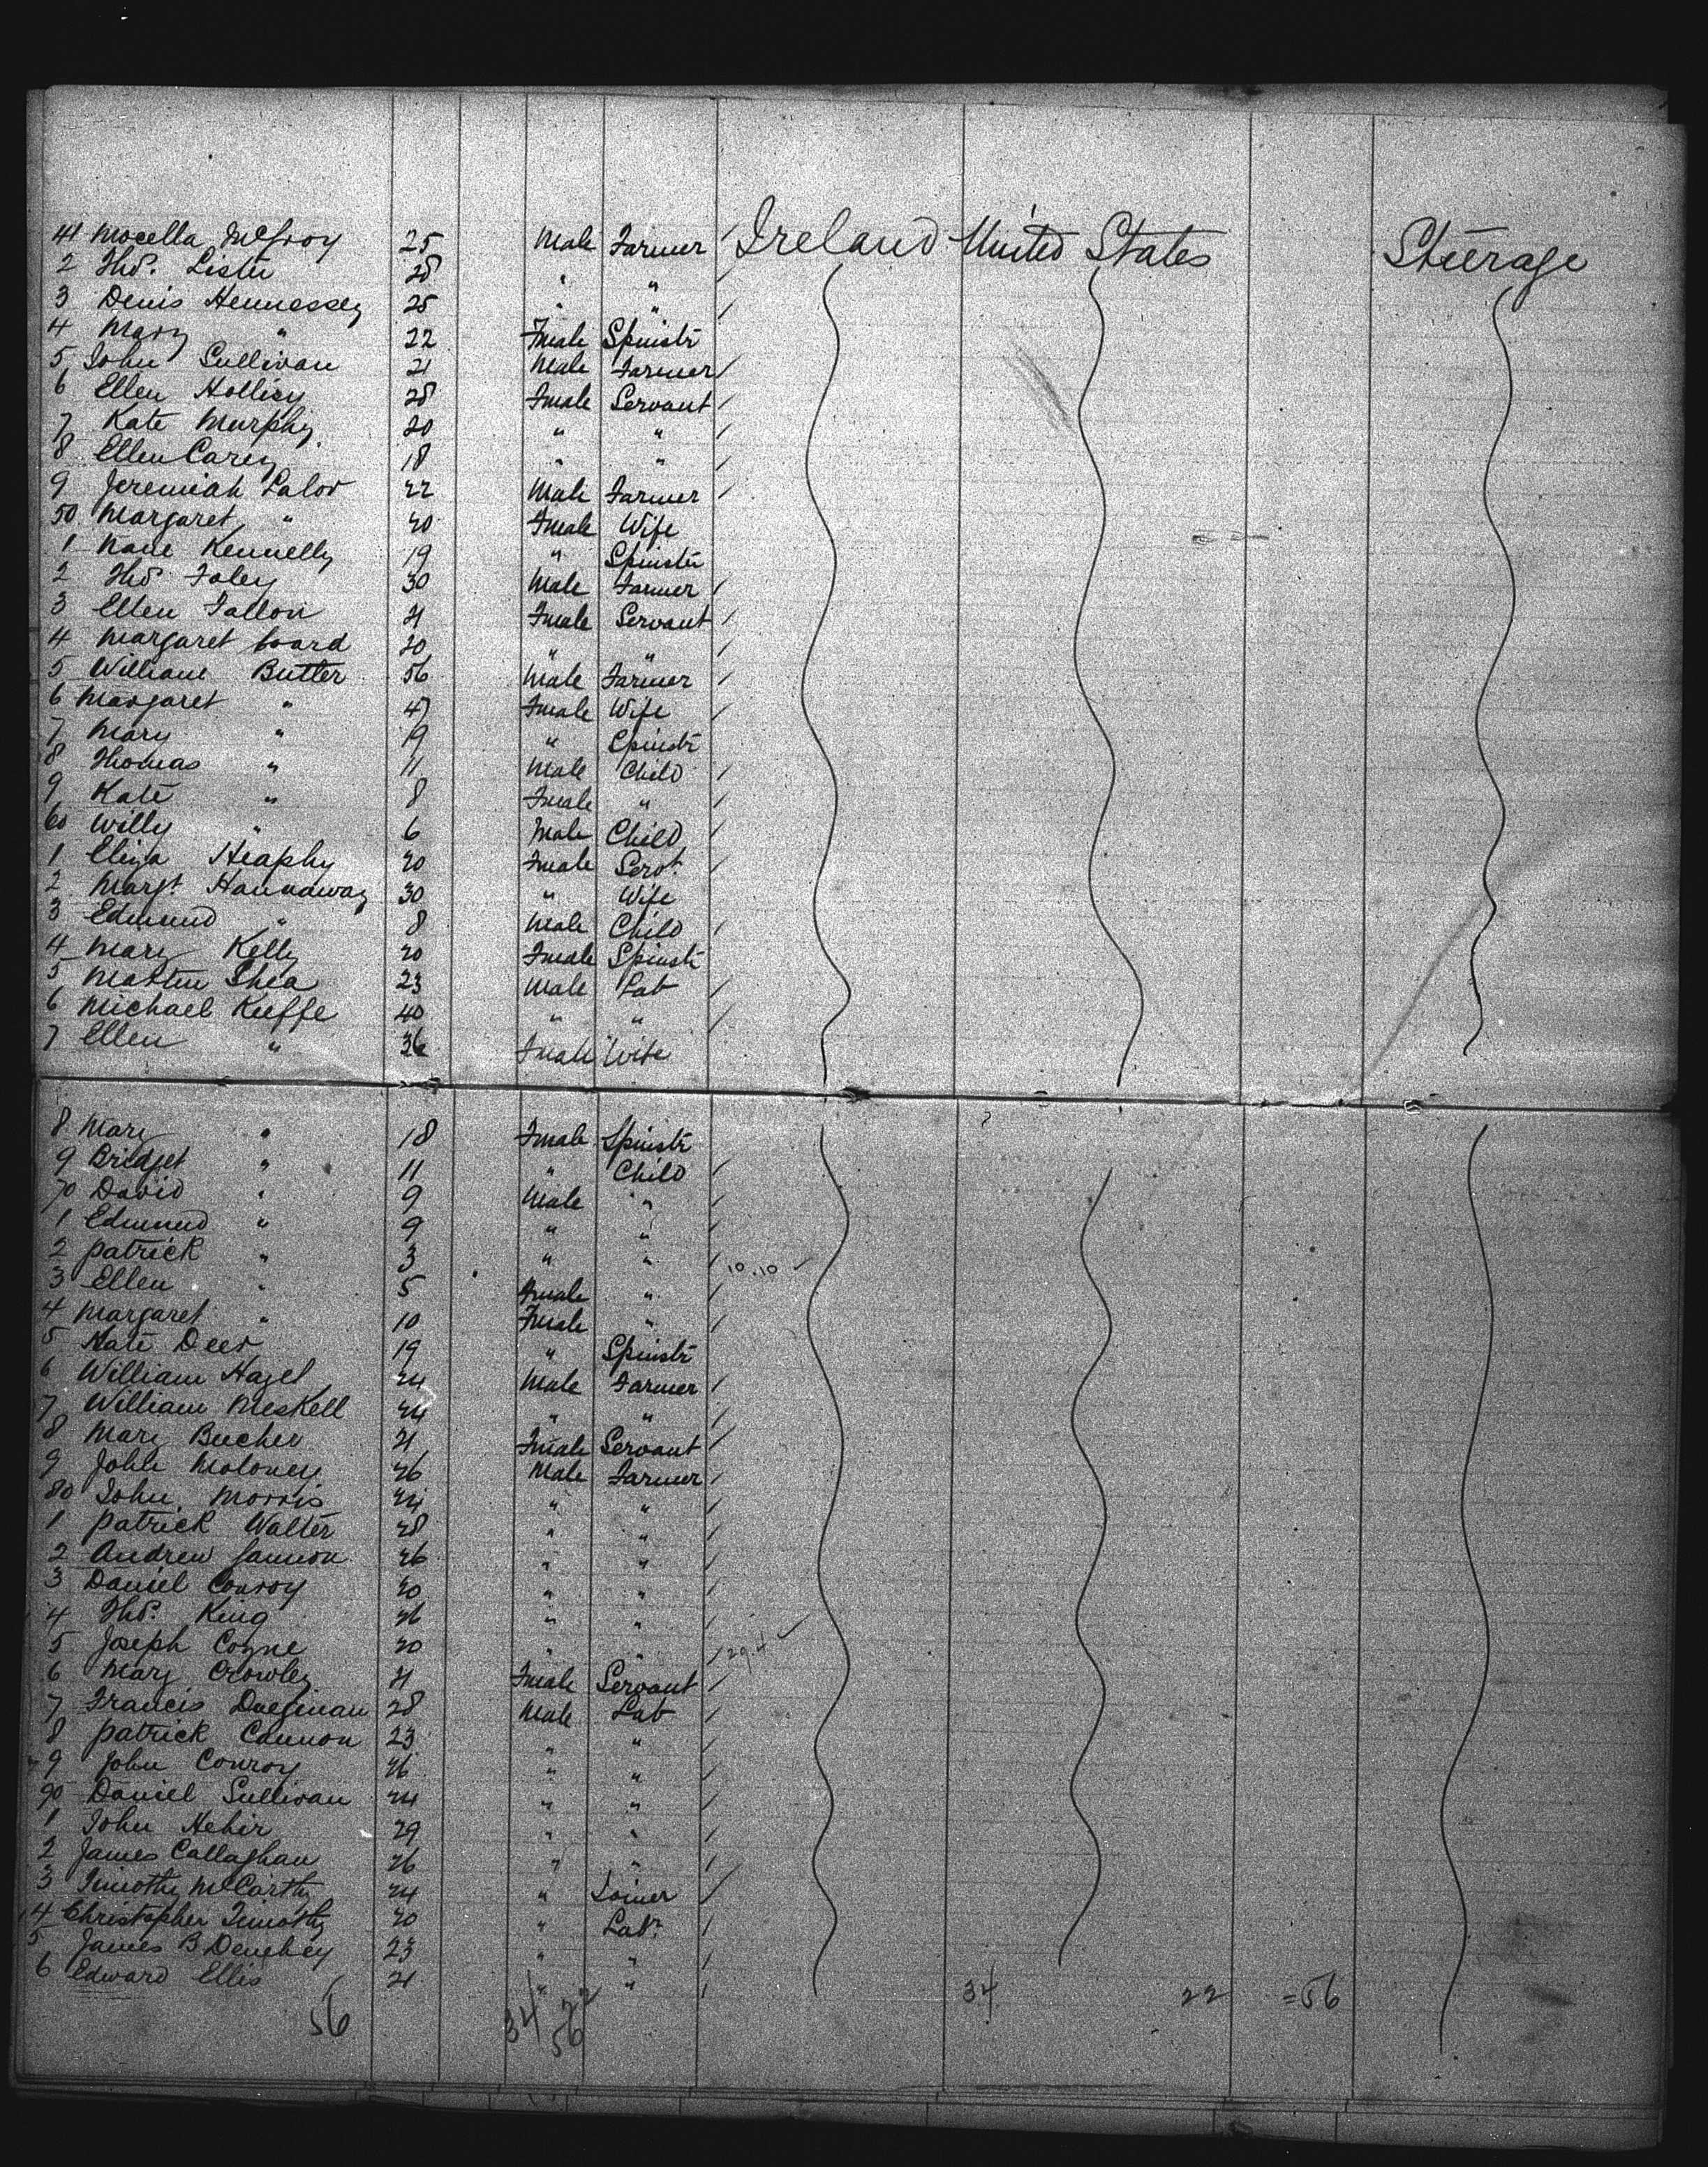 41 Mocella McGroy 25 Male Farmer Ireland United States Steerage
2 Thos. Lister 28 " "
3 Denis Hennessey 25 " "
4 Mary " 22 Fmale Spinstr
5 John Sullivan 21 Male Farmer
6 Ellen 28 Fmale Servant
7 Kate Murphy 20 " "
8 Ellen Carey 18 " "
9 Jeremiah Lalor 22 Male Farmer
50 Margaret " 20 Fmale Wife
1 Kennelly 19 " Spinstr
2 Thos. Foley 30 Male Farmer
3 Ellen Fallon 21 Fmale Servant
4 Margaret 20 " "
5 William Butter 56 Male Farmer
6 Margaret " 47 Fmale Wife
7 Mary " 19 " Spinstr
8 Thomas " 11 Male Child
9 Kate " 8 Fmale "
60 Willy " 6 Male Child
1 Eliza Heaphy 20 Fmale Servt.
2 Margt. Hannaway 30 " Wife
3 Edmund " 8 Male Child
4 Mary Kelly 20 Fmale Spinstr
5 Martin Shea 23 Male Lab
6 Michael Keeffe 40 " "
7 Ellen " 36 Fmale Wife
8 Mary " 18 Fmale Spinstr
9 Bridget " 11 " Child
70 David " 9 Male "
1 Edmund " 9 " "
2 Patrick " 3 " " 10.10
3 Ellen " 5 Fmale "
4 Margaret " 10 Fmale "
5 Kate Deer 19 " Spinstr
6 William Hazel 24 Male Farmer
7 William Meskell 24 " "
8 Mary Bucher 21 Fmale Servant
9 John Moloney 26 Male Farmer
80 John Morris 24 " "
1 Patrick Walter 28 " "
2 Andrew Gannon 26 " "
3 Daniel Conroy 20 " "
4 Thos. King 26 " "
5 Joseph Coyne 20 " "
6 Mary Crowley 21 Fmale Servant
7 Francis 28 Male Lab
8 Patrick Cannon 23 " "
9 John Conroy 26 " "
90 Daniel Sullivan 24 " "
1 John Hehir 29 " "
2 James Callaghan 26 " "
3 Timothy McCarthy 24 " Joiner
4 Christopher Timothy 20 " Labr.
5 James B Denehey 23 " "
6 Edward Ellis 21 " "
34 22 =56
56 34 22
56